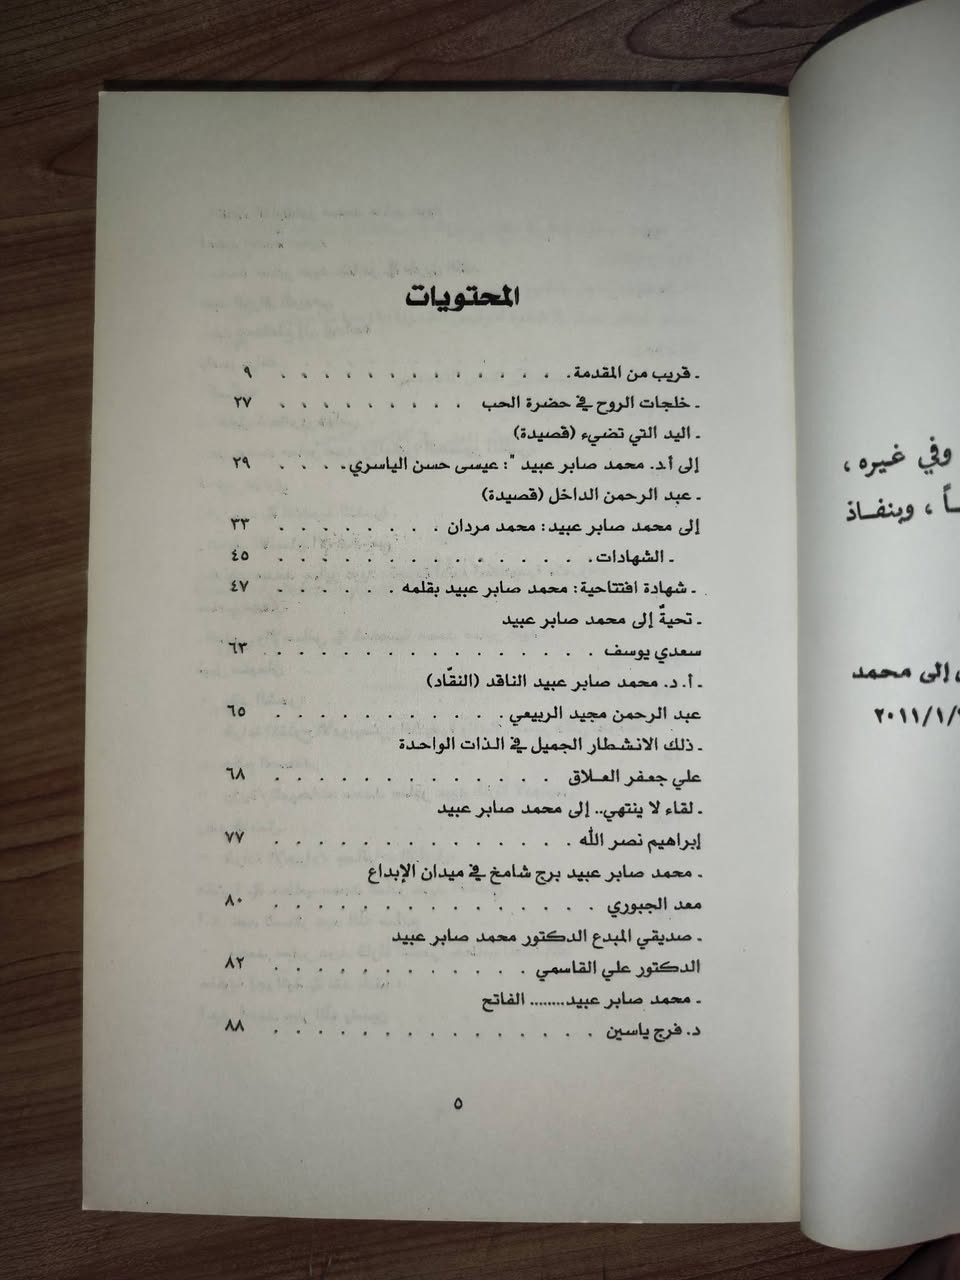 المحتويات
ـ قريب من المقدمة . . . . . . . . . . . . ٩
ـ خلجات الروح في حضرة الحب . . . . . . . . . ٢٧
ـ اليد التي تضيء (قصيدة)
إلى أ.د. محمد صابر عبيد ": عيسى حسن الياسري . . . . ٢٩
ـ عبد الرحمن الداخل (قصيدة)
إلى محمد صابر عبيد: محمد مردان . . . . . . . . ٣٣
ـ الشهادات . . . . . . . . . . . . . ٤٥
ـ شهادة افتتاحية: محمد صابر عبيد بقلمه . . . . . ٤٧
ـ تحيةٌ إلى محمد صابر عبيد
سعدي يوسف . . . . . . . . . . . . . ٦٣
ـ أ. د. محمد صابر عبيد الناقد (النقّاد)
عبد الرحمن مجيد الربيعي . . . . . . . . . . ٦٥
ـ ذلك الانشطار الجميل في الذات الواحدة
علي جعفر العلاق . . . . . . . . . . . ٦٨
ـ لقاء لا ينتهي.. إلى محمد صابر عبيد
إبراهيم نصر الله . . . . . . . . . . . ٧٧
ـ محمد صابر عبيد برج شامخ في ميدان الإبداع
معد الجبوري . . . . . . . . . . . . . ٨٠
ـ صديقي المبدع الدكتور محمد صابر عبيد
الدكتور علي القاسمي . . . . . . . . . . ٨٢
ـ محمد صابر عبيد........ الفاتح
د. فرج ياسين . . . . . . . . . . . . . ٨٨
٥
وفي غيره ،
ـاً ، وبنفاذ
إلى محمد
٢٠١١/١/